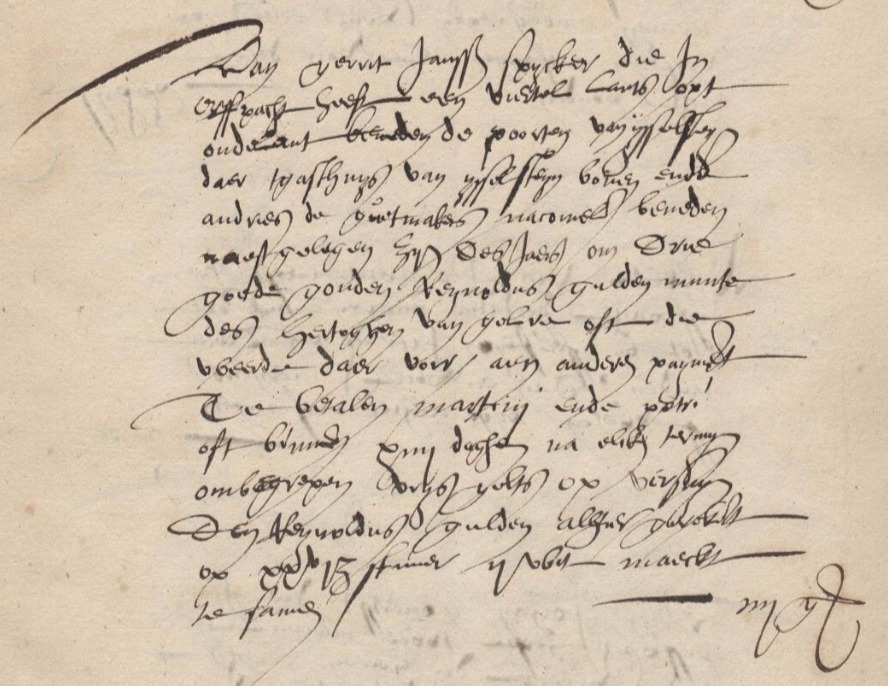 Van gerrit Janss spycker die In
erffpacht heeft een viertel lants opt
oudelant beneden de poorten van ysselsteyn
daer tgasthuys van ysselsteyn boven ende
andries de guetmakers nacomel beneden
naest gelegen zyn Des Jaers om Drie
goede gouden Reynoldus gulden munte
des hertoghen van gelre oft die
weerde daer voor aen anderen payment
Te betalen martini ende petri
oft binnen xiiij daghen na elcken termyn
ombegrepen vrys gelts op versuym
Den Reynoldus gulden alhier gerekent
op stuver maeckt
te samen iiij